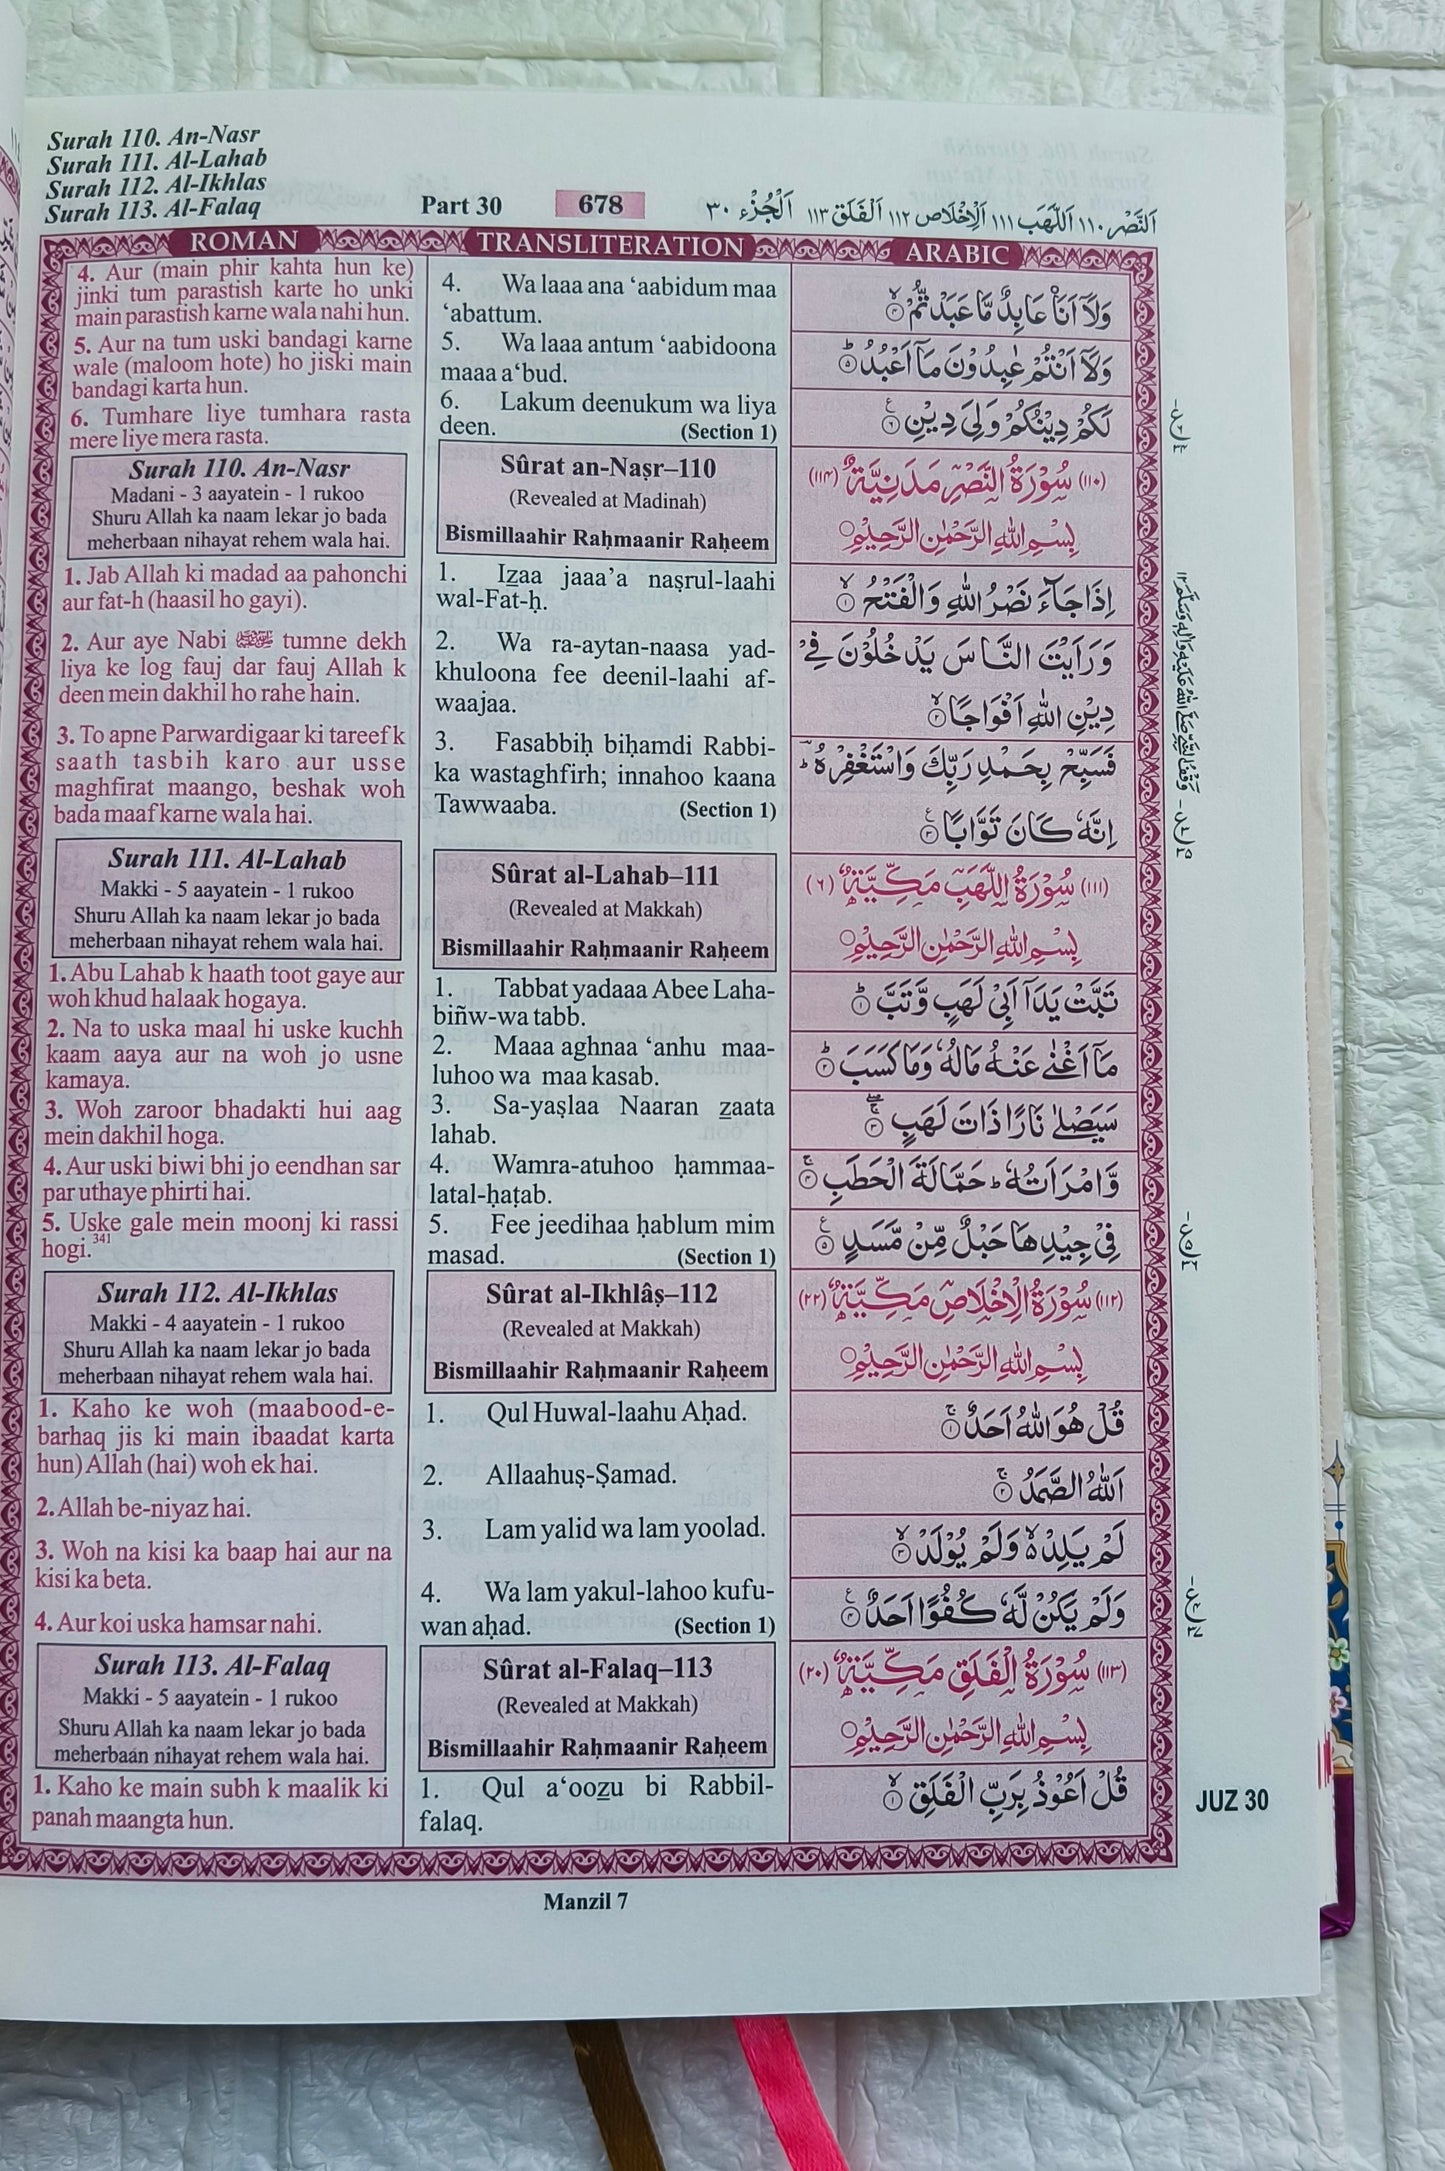 Surah 110. An-Nasr
Surah 111. Al-Lahab
Surah 112. Al-Ikhlas
Surah 113. Al-Falaq
Part 30
678
اَلنَّصْر ١١٠ اَللَّهَب ١١١ اَلْاِخْلَاص ١١٢ اَلْفَلَق ١١٣ اَلْجُزْء ٣٠
ROMAN
4. Aur (main phir kahta hun ke)
jinki tum parastish karte ho unki
main parastish karne wala nahi hun.
5. Aur na tum uski bandagi karne
wale (maloom hote) ho jiski main
bandagi karta hun.
6. Tumhare liye tumhara rasta
mere liye mera rasta.
Surah 110. An-Nasr
Madani - 3 aayatein - 1 rukoo
Shuru Allah ka naam lekar jo bada
meherbaan nihayat rehem wala hai.
1. Jab Allah ki madad aa pahonchi
aur fat-h (haasil ho gayi).
2. Aur aye Nabi ﷺ tumne dekh
liya ke log fauj dar fauj Allah k
deen mein dakhil ho rahe hain.
3. To apne Parwardigaar ki tareef k
saath tasbih karo aur usse
maghfirat maango, beshak woh
bada maaf karne wala hai.
Surah 111. Al-Lahab
Makki - 5 aayatein - 1 rukoo
Shuru Allah ka naam lekar jo bada
meherbaan nihayat rehem wala hai.
1. Abu Lahab k haath toot gaye aur
woh khud halaak hogaya.
2. Na to uska maal hi uske kuchh
kaam aaya aur na woh jo usne
kamaya.
3. Woh zaroor bhadakti hui aag
mein dakhil hoga.
4. Aur uski biwi bhi jo eendhan sar
par uthaye phirti hai.
5. Uske gale mein moonj ki rassi
hogi.341
Surah 112. Al-Ikhlas
Makki - 4 aayatein - 1 rukoo
Shuru Allah ka naam lekar jo bada
meherbaan nihayat rehem wala hai.
1. Kaho ke woh (maabood-e-
barhaq jis ki main ibaadat karta
hun) Allah (hai) woh ek hai.
2. Allah be-niyaz hai.
3. Woh na kisi ka baap hai aur na
kisi ka beta.
4. Aur koi uska hamsar nahi.
Surah 113. Al-Falaq
Makki - 5 aayatein - 1 rukoo
Shuru Allah ka naam lekar jo bada
meherbaan nihayat rehem wala hai.
1. Kaho ke main subh k maalik ki
panah maangta hun.
TRANSLITERATION
4. Wa laaa ana ‘aabidum maa
‘abattum.
5. Wa laaa antum ‘aabidoona
maaa a‘bud.
6. Lakum deenukum wa liya
deen. (Section 1)
Sûrat an-Naṣr–110
(Revealed at Madinah)
Bismillaahir Raḥmaanir Raḥeem
1. Izaa jaaa’a naṣrul-laahi
wal-Fat-ḥ.
2. Wa ra-aytan-naasa yad-
khuloona fee deenil-laahi af-
waajaa.
3. Fasabbiḥ biḥamdi Rabbi-
ka wastaghfirh; innahoo kaana
Tawwaaba. (Section 1)
Sûrat al-Lahab–111
(Revealed at Makkah)
Bismillaahir Raḥmaanir Raḥeem
1. Tabbat yadaaa Abee Laha-
biñw-wa tabb.
2. Maaa aghnaa ‘anhu maa-
luhoo wa maa kasab.
3. Sa-yaṣlaa Naaran zaata
lahab.
4. Wamra-atuhoo ḥammaa-
latal-ḥaṭab.
5. Fee jeedihaa ḥablum mim
masad. (Section 1)
Sûrat al-Ikhlâṣ–112
(Revealed at Makkah)
Bismillaahir Raḥmaanir Raḥeem
1. Qul Huwal-laahu Aḥad.
2. Allaahuṣ-Ṣamad.
3. Lam yalid wa lam yoolad.
4. Wa lam yakul-lahoo kufu-
wan aḥad. (Section 1)
Sûrat al-Falaq–113
(Revealed at Makkah)
Bismillaahir Raḥmaanir Raḥeem
1. Qul a‘oozu bi Rabbil-
falaq.
ARABIC
وَلَآ اَنَا۠ عَابِدٌ مَّا عَبَدْتُّمْ ۙ ۴
وَلَآ اَنْتُمْ عٰبِدُوْنَ مَآ اَعْبُدُ ؕ ۵
لَكُمْ دِيْنُكُمْ وَلِيَ دِيْنِ ۶
(١١٠) سُوْرَةُ النَّصْرِ مَدَنِيَّةٌ (١١٤)
بِسْمِ اللهِ الرَّحْمٰنِ الرَّحِيْمِ
اِذَا جَآءَ نَصْرُ اللهِ وَالْفَتْحُ ۙ ١
وَرَاَيْتَ النَّاسَ يَدْخُلُوْنَ فِيْ
دِيْنِ اللهِ اَفْوَاجًا ۙ ٢
فَسَبِّحْ بِحَمْدِ رَبِّكَ وَاسْتَغْفِرْهُ ؕ
اِنَّهٗ كَانَ تَوَّابًا ٣
(١١١) سُوْرَةُ اللَّهَبِ مَكِّيَّةٌ (٦)
بِسْمِ اللهِ الرَّحْمٰنِ الرَّحِيْمِ
تَبَّتْ يَدَآ اَبِيْ لَهَبٍ وَّتَبَّ ؕ ١
مَآ اَغْنٰى عَنْهُ مَالُهٗ وَمَا كَسَبَ ؕ ٢
سَيَصْلٰى نَارًا ذَاتَ لَهَبٍ ٣
وَّامْرَاَتُهٗ ؕ حَمَّالَةَ الْحَطَبِ ۚ ۴
فِيْ جِيْدِهَا حَبْلٌ مِّنْ مَّسَدٍ ۵
(١١٢) سُوْرَةُ الْاِخْلَاصِ مَكِّيَّةٌ (٢٢)
بِسْمِ اللهِ الرَّحْمٰنِ الرَّحِيْمِ
قُلْ هُوَ اللهُ اَحَدٌ ۚ ١
اَللهُ الصَّمَدُ ۚ ٢
لَمْ يَلِدْ ۙ وَلَمْ يُوْلَدْ ۙ ٣
وَلَمْ يَكُنْ لَّهٗ كُفُوًا اَحَدٌ ۴
(١١٣) سُوْرَةُ الْفَلَقِ مَكِّيَّةٌ (٢٠)
بِسْمِ اللهِ الرَّحْمٰنِ الرَّحِيْمِ
قُلْ اَعُوْذُ بِرَبِّ الْفَلَقِ ۙ ١
JUZ 30
Manzil 7